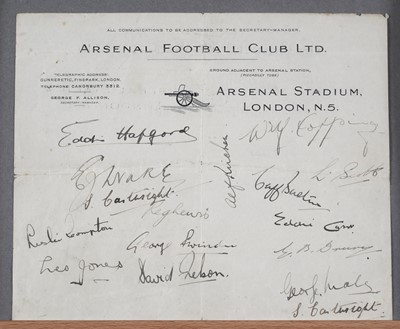 ALL COMMUNICATIONS TO BE ADDRESSED TO THE SECRETARY-MANAGER.
ARSENAL FOOTBALL CLUB LTD.
TELEGRAPHIC ADDRESS:
GUNNERETIC, FINSPARK, LONDON.
TELEPHONE: CANONBURY 3312.
GEORGE F. ALLISON,
SECRETARY-MANAGER.
GROUND ADJACENT TO ARSENAL STATION,
(PICCADILLY TUBE)
ARSENAL STADIUM,
LONDON, N.5.
Eddie Hapgood
Wilf Copping
Alf Kirchen
E Drake
S. Cartwright.
Cliff Bastin
Leslie Compton
George Swindin
Leo Jones
David Nelson.
George Male
S. Cartwright